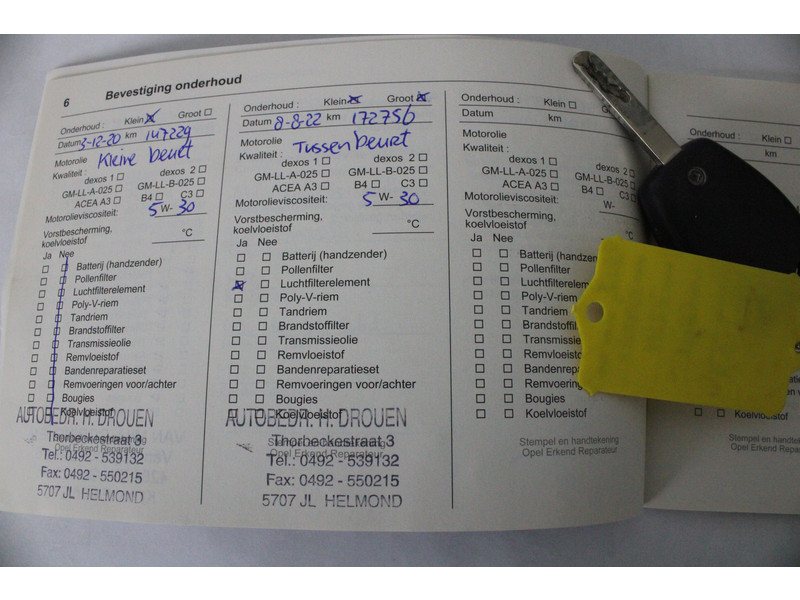 6 Bevestiging onderhoud
Onderhoud : Klein Groot
Datum 3-12-20 km 147229
Motorolie Kleine beurt
Kwaliteit :
dexos 1 dexos 2
GM-LL-A-025 GM-LL-B-025
ACEA A3 B4 C3
Motorolieviscositeit: 5 W- 30
Vorstbescherming,
koelvloeistof °C
Ja Nee
Batterij (handzender)
Pollenfilter
Luchtfilterelement
Poly-V-riem
Tandriem
Brandstoffilter
Transmissieolie
Remvloeistof
Bandenreparatieset
Remvoeringen voor/achter
Bougies
Koelvloeistof
AUTOBEDR. H. DROUEN
Thorbeckestraat 3
Opel Erkend Reparateur
Tel.: 0492 - 539132
Fax: 0492 - 550215
5707 JL HELMOND
Onderhoud : Klein Groot
Datum 8-8-22 km 172756
Motorolie
Kwaliteit : Tussenbeurt
dexos 1 dexos 2
GM-LL-A-025 GM-LL-B-025
ACEA A3 B4 C3
Motorolieviscositeit: 5 W- 30
Vorstbescherming,
koelvloeistof °C
Ja Nee
Batterij (handzender)
Pollenfilter
Luchtfilterelement
Poly-V-riem
Tandriem
Brandstoffilter
Transmissieolie
Remvloeistof
Bandenreparatieset
Remvoeringen voor/achter
Bougies
Koelvloeistof
AUTOBEDR. H. DROUEN
Thorbeckestraat 3
Stempel en handtekening
Opel Erkend Reparateur
Tel.: 0492 - 539132
Fax: 0492 - 550215
5707 JL HELMOND
Onderhoud : Klein
Datum km
Motorolie
Kwaliteit :
dexos 1 dexos 2
GM-LL-A-025 GM-LL-B-025
ACEA A3 B4 C3
Motorolieviscositeit: W-
Vorstbescherming,
koelvloeistof
Ja Nee
Batterij (handzen
Pollenfilter
Luchtfilterelemen
Poly-V-riem
Tandriem
Brandstoffilt
Transmissie
Remvloeistof
Bandenrepara
Remvoering
Bougies
Koelvloeistof
Stempel en handtekening
Opel Erkend Reparateur
Onderhoud : Klein
km
Koelvloeistof
Stempel en handtekening
Opel Erkend Reparateur